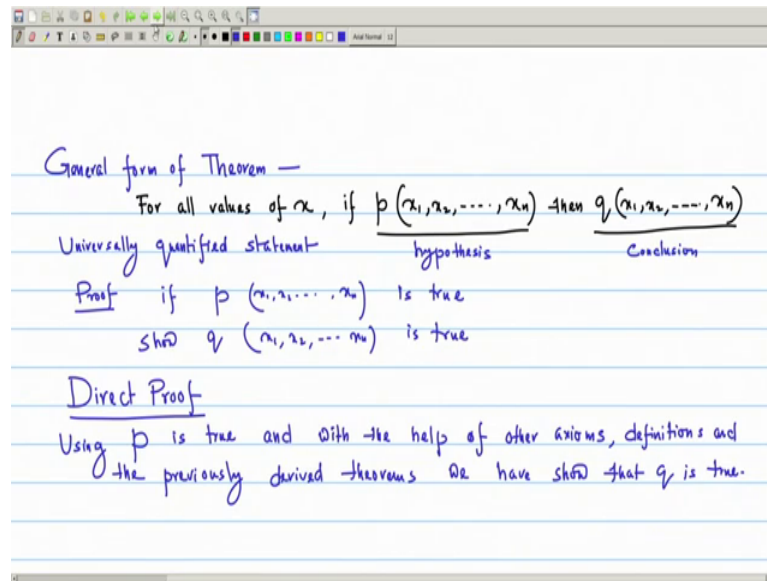 Arial Normal 12
General form of Theorem —
For all values of x, if p(x1, x2, ----, xn) then q(x1, x2, ----, xn)
Universally quantified statement hypothesis Conclusion
Proof if p (x1, x2 ---- , xn) is true
show q (x1, x2, --- xn) is true
Direct Proof
Using p is true and with the help of other axioms, definitions and
the previously derived theorems we have show that q is true.